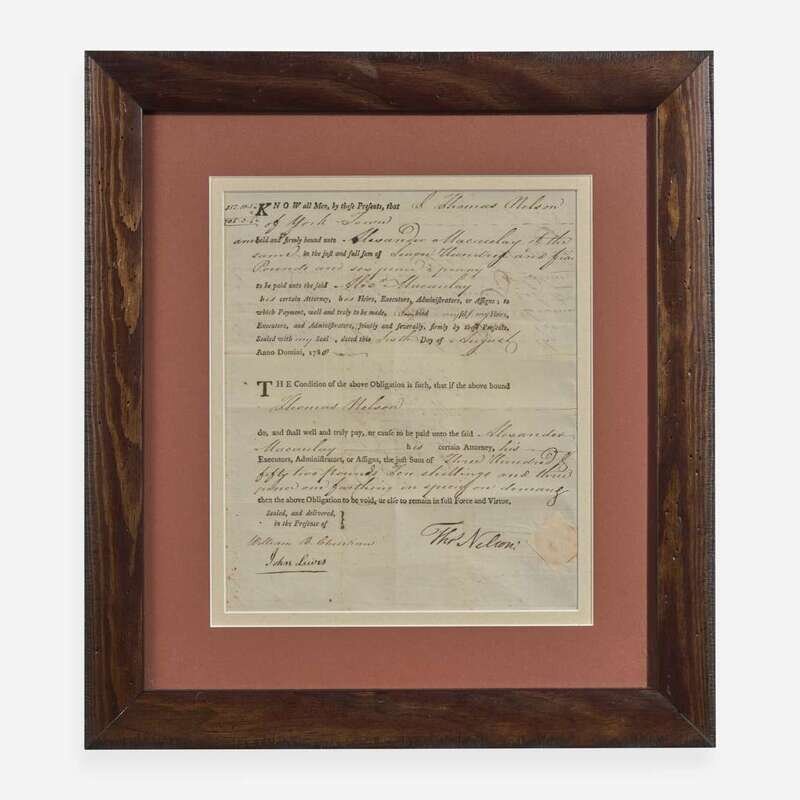 KNOW all Men, by these Presents, that I Thomas Nelson
of York Town
am held and firmly bound unto Alexander Macaulay of the
same in the just and full sum of Seven Hundred and five
Pounds and six pence ½ penny
to be paid unto the said Alex Macaulay
his certain Attorney, his Heirs, Executors, Administrators, or Assigns; to
which Payment, well and truly to be made, I bind myself my Heirs,
Executors, and Administrators, jointly and severally, firmly by these Presents,
Sealed with my Seal, dated this Day of August
Anno Domini, 178
THE Condition of the above Obligation is such, that if the above bound
Thomas Nelson
do, and shall well and truly pay, or cause to be paid unto the said Alexander
Macaulay his certain Attorney, his
Executors, Administrators, or Assigns, the just Sum of Three Hundred &
fifty two Pounds Ten shillings and three
pence one farthing in specie on demand
then the above Obligation to be void, or else to remain in full Force and Virtue,
Sealed, and delivered,
in the Presence of
William B. Christian
John Lewis
Thos Nelson